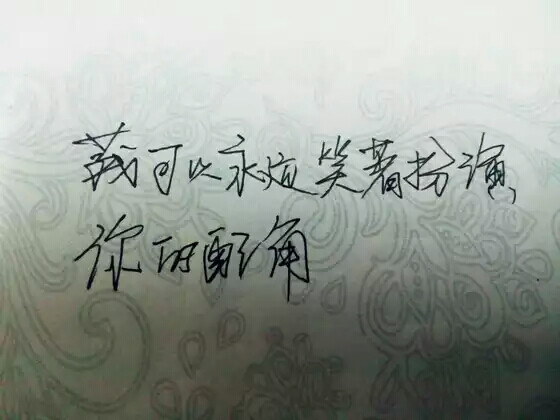 莪可以永远笑著扮演,
你的配角